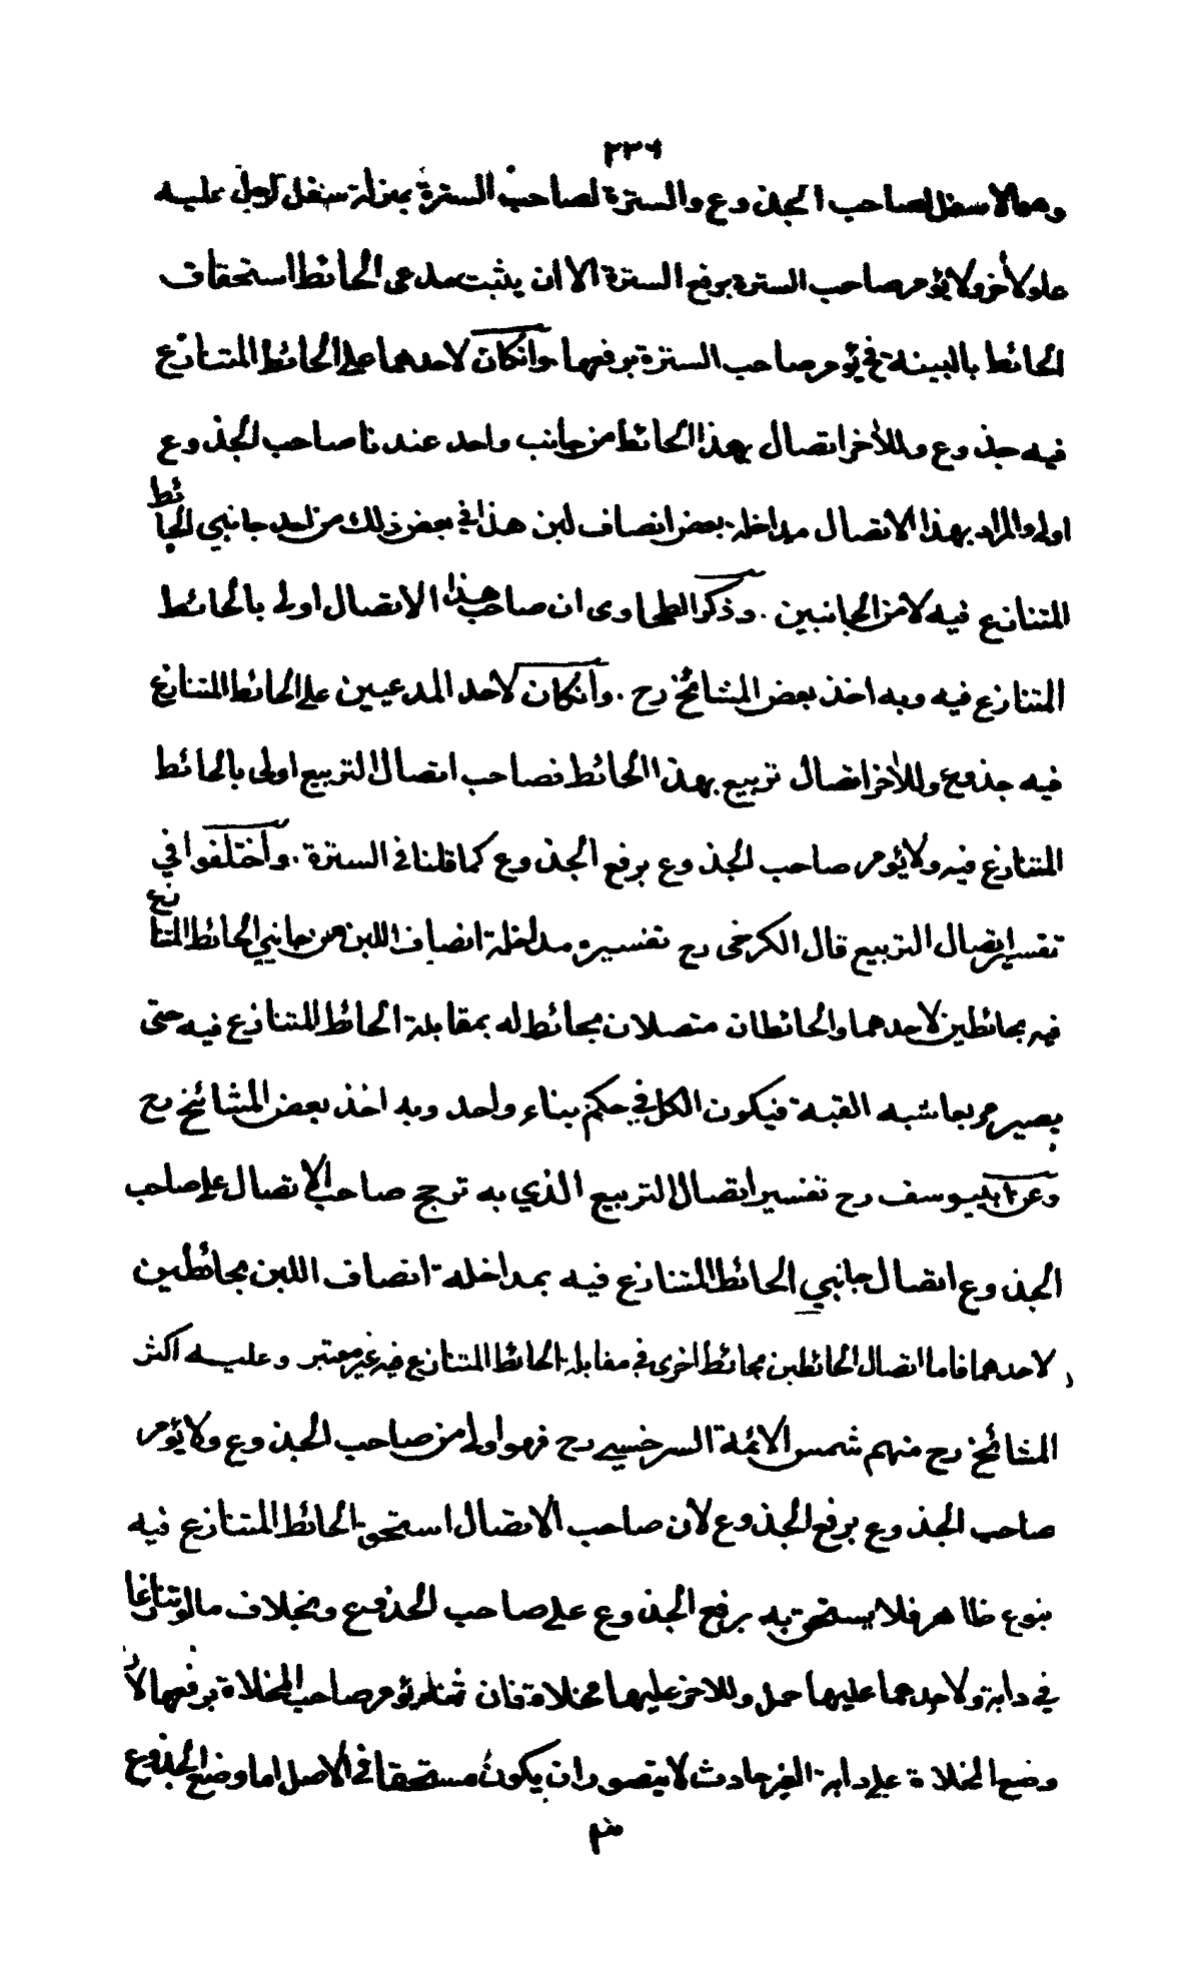 ٢٣٦
وهو الاسفل لصاحب الجذوع والسترة لصاحب السترة بمنزلة سفل لرجل عليه
علو لاخر ولا يؤمر صاحب السترة برفع السترة الا ان يثبت مدعى الحائط استحقاق
الحائط بالبينة فح يؤمر صاحب السترة برفعها وانكان لاحدهما على الحائط المتنازع
فيه جذوع وللاخر اتصال بهذا الحائط من جانب واحد عندنا صاحب الجذوع
اولى والمراد بهذا الاتصال مداخلة بعض انصاف لبن هذا في بعض ذلك من احد جانبي الحائط
المتنازع فيه لا من الجانبين . وذكر الطحاوى ان صاحب هذا الاتصال اولى بالحائط
المتنازع فيه وبه اخذ بعض المشائخ رح . وانكان لاحد المدعيين على الحائط المتنازع
فيه جذوع وللاخر اتصال تربيع بهذا الحائط فصاحب اتصال التربيع اولى بالحائط
المتنازع فيه ولا يؤمر صاحب الجذوع برفع الجذوع كما قلنا في السترة . واختلفوا في
تفسير اتصال التربيع قال الكرخى رح تفسيره مداخلة انصاف اللبن من جانبي الحائط المتنازع
فيه بحائطين لاحدهما والحائطان متصلان بحائط له بمقابلة الحائط المتنازع فيه حتى
يصير مربعا شبه القبة فيكون الكل في حكم بناء واحد وبه اخذ بعض المشائخ رح
وعن ابي يوسف رح تفسير اتصال التربيع الذي به ترجح صاحب الاتصال على صاحب
الجذوع اتصال جانبي الحائط المتنازع فيه بمداخلة انصاف اللبن بحائطين
لاحدهما فاما اتصال الحائطين بحائط اخرى في مقابلة الحائط المتنازع فيه غير معتبر وعليه اكثر
المشائخ رح منهم شمس الائمة السرخسي رح فهو اولى من صاحب الجذوع ولا يؤمر
صاحب الجذوع برفع الجذوع لان صاحب الاتصال استحق الحائط المتنازع فيه
بنوع ظاهر فلا يستحق به برفع الجذوع على صاحب الجذوع وبخلاف ما لو تنازعا
في دابة ولاحدهما عليها حمل وللاخر عليها مخلاة فان ثمة يؤمر صاحب المخلاة برفعها لان
وضع المخلاة على دابة الغير حادث لا يتصور ان يكون مستحقا في الاصل اما وضع الجذوع